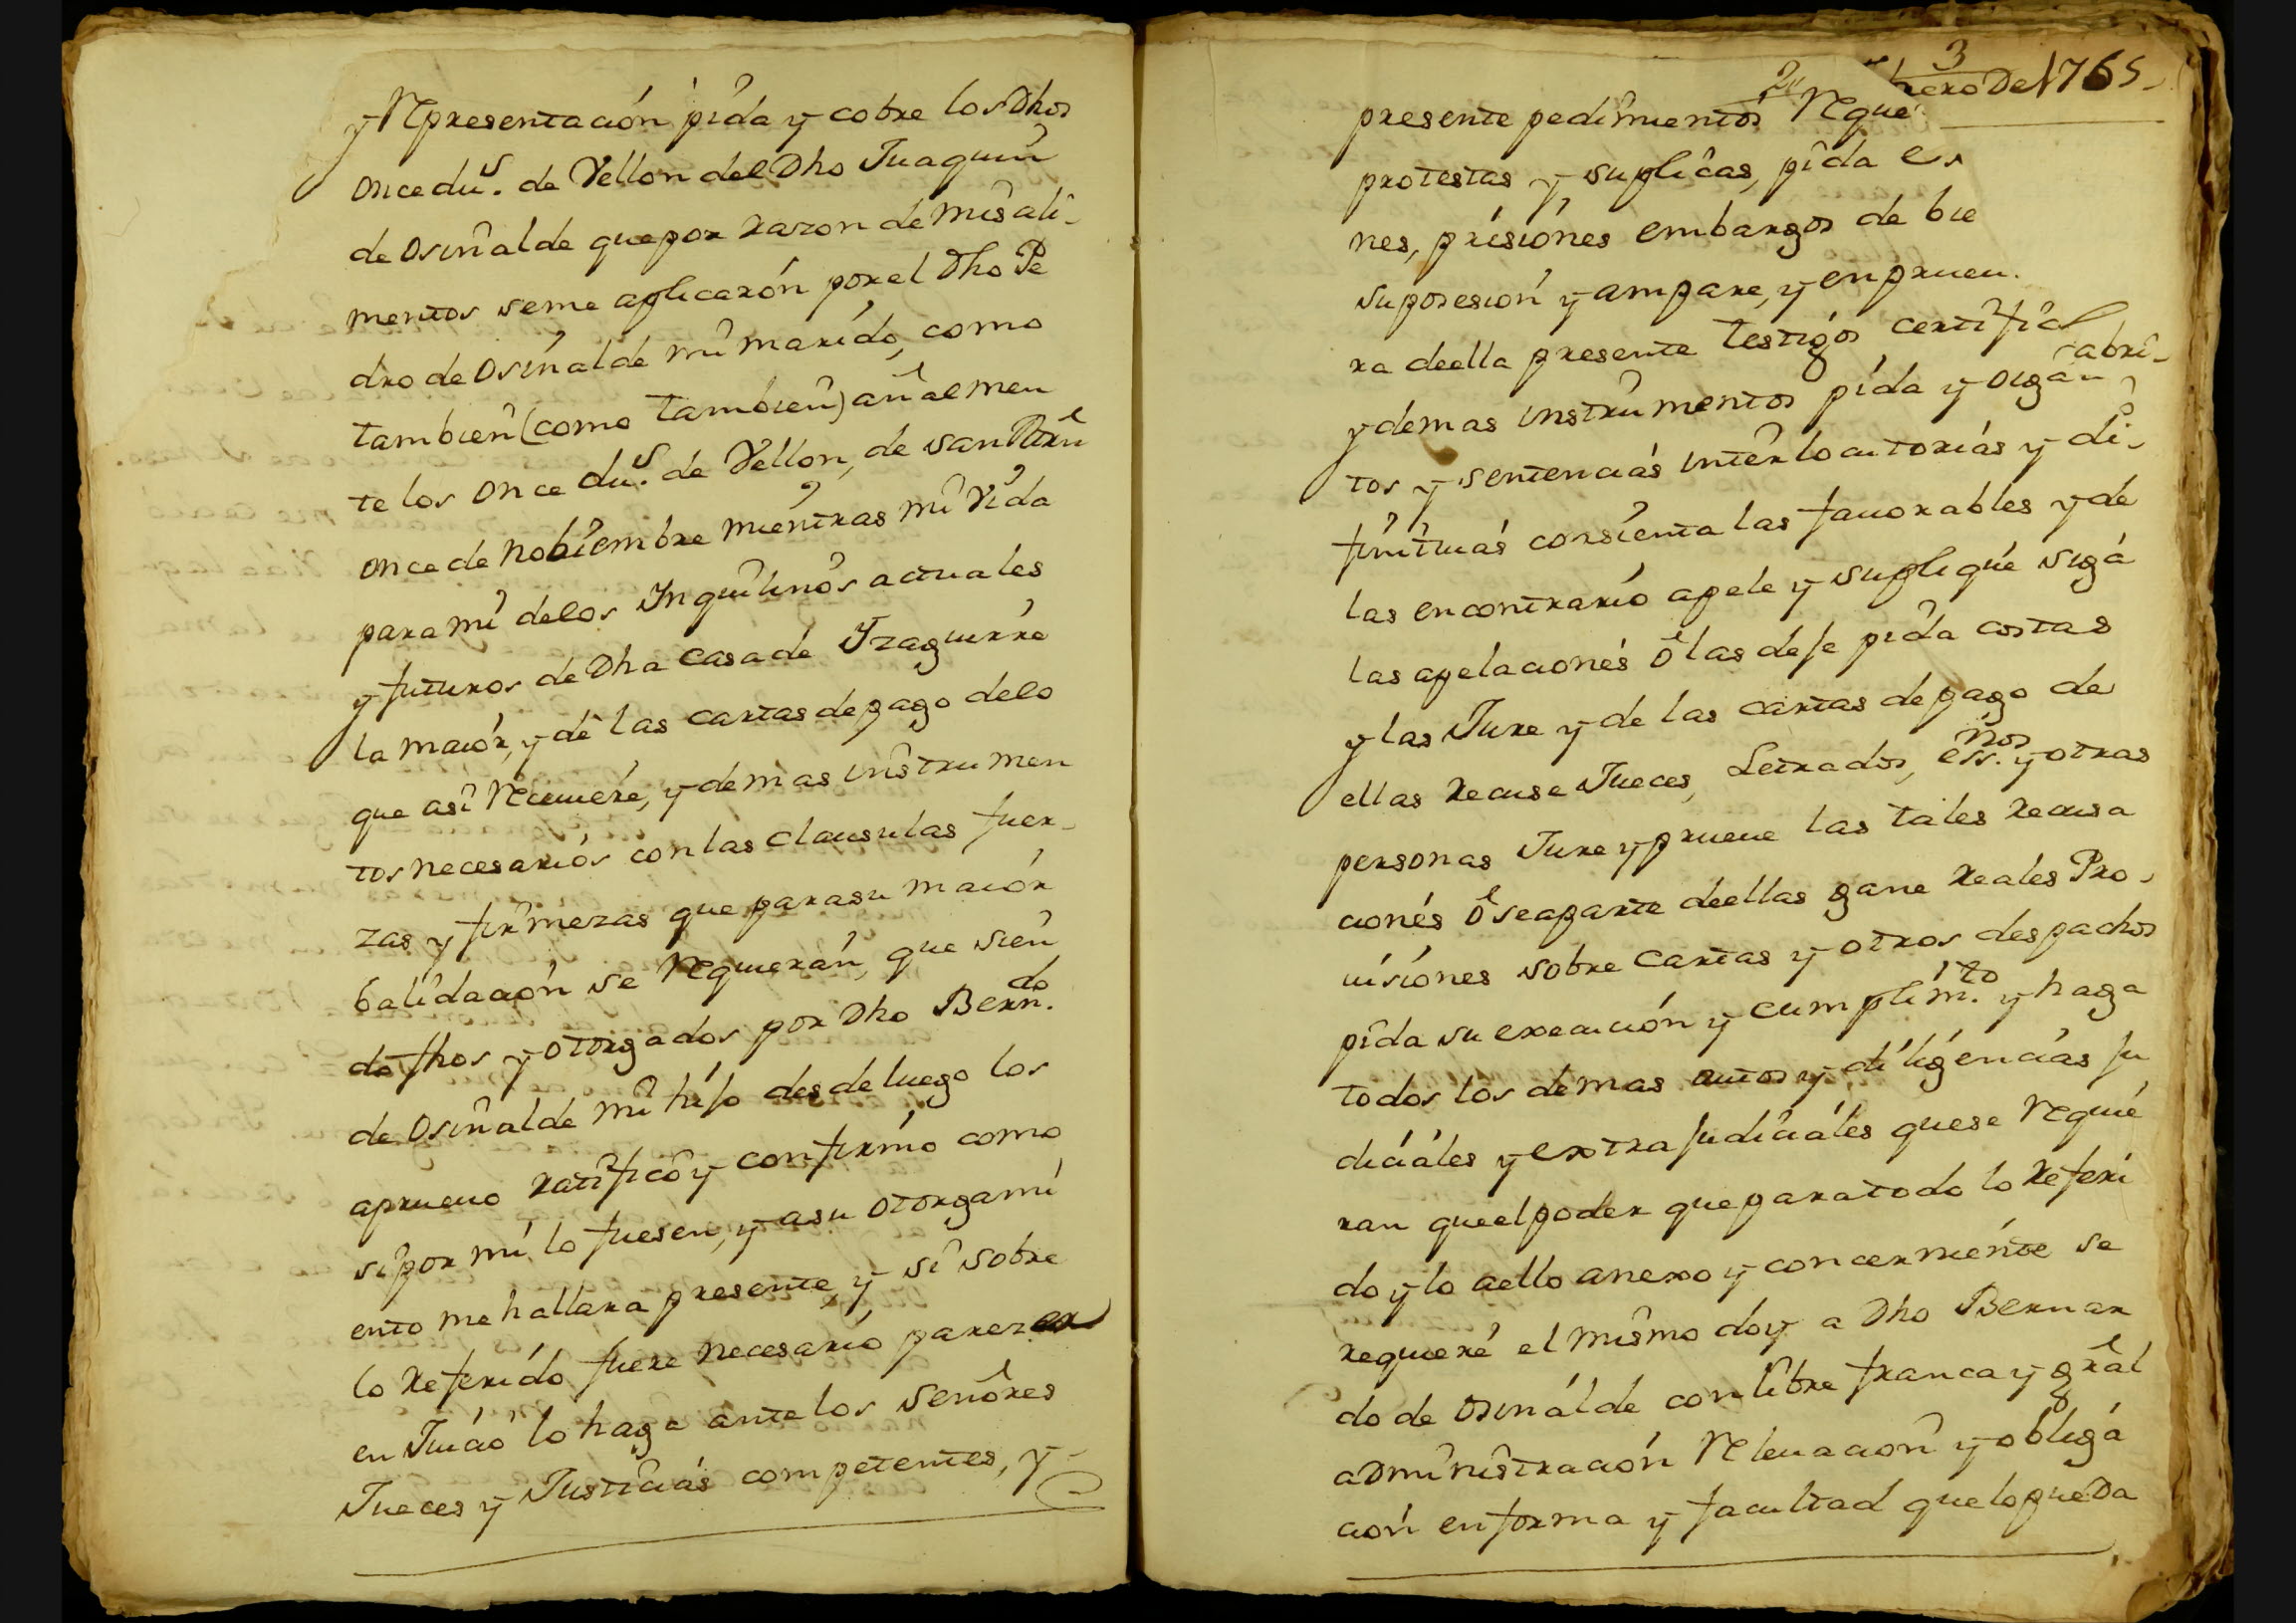 y Representación pida y cobre los Dhos
once du.s de Vellon del Dho Juaquin
de Osinalde que por razon de mis ali-
mentos se me aplicarón por el Dho Pe
dro de Osinalde mi marido, como
tambien (como tambien) añalmen
te los once du.s de Vellon, de san Mrñ
once de Nobiembre mientras mi Vida
para mi de los Inquilinos actuales
y futuros de Dha Casa de Yzaguirre
la maiór, y dè las cartas de pago de lo
que asi Reciuiére, y demas instrumen
tos necesariós con las clausulas fuer-
zas y firmezas que para su maiór
balidación se Requierán, que sien
do fhos y otorgados por Dho Bern.do
de Osinalde mi hijo desde luego los
aprueuo ratifico y confirmo como
si por mi lo fuesen, y a su otorgami
ento me hallara presente, y si sobre
lo Referido fuere necesario parezer
en Juició lo haga ante los señores
Jueces y Justiciás competentes, y-
3
2
nero De 1765-
presente pedimientos Reque
protestas y suplicas, pida
nes, prisiónes embargos de bie
su posesion y ampare, y en prueu
ra de ella presente testigos certific
y demas instrumentos pida y oiga
abri-
tos y sentenciás interlocutoriás y di-
finitiuás consienta las fauorables y de
las en contrario apele y supliqué sigá
las apelacionés ò las deje pida costas
y las Jure y de las cartas de pago de
ellas Recuse Jueces, Letrados, ess.nos y otras
personas Jure y prueue las tales Recusa
cionés ò se aparte de ellas gane Reales Pro-
uisiónes sobre Cartas y otros despachos
pida su execución y cumplim.to y haga
todos los demas autos y diligénciás ju
diciáles y extra judiciáles que se Requié
ran que el poder que para todo lo Referi
do y lo aello anexo y concerniénte se
requieré el mismo doy a Dho Bernar
do de Osinálde con libre franca y grâl
administración Releuación y obligá
ción en forma y facultad que lo pueda